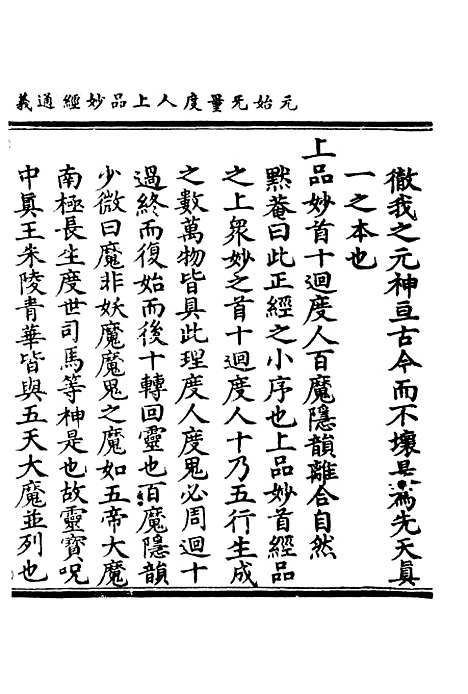 元始无量度人上品妙經通義
徹我之元神亘古今而不壞是爲先天眞
一之本也
上品妙首十迴度人百魔隱韻離合自然
默菴曰此正經之小序也上品妙首經品
之上衆妙之首十迴度人十乃五行生成
之數萬物皆具此理度人度鬼必周迴十
過終而復始而後十轉回靈也百魔隱韻
少微曰魔非妖魔魔鬼之魔如五帝大魔
南極長生度世司馬等神是也故靈寶呪
中眞王朱陵青華皆與五天大魔並列也